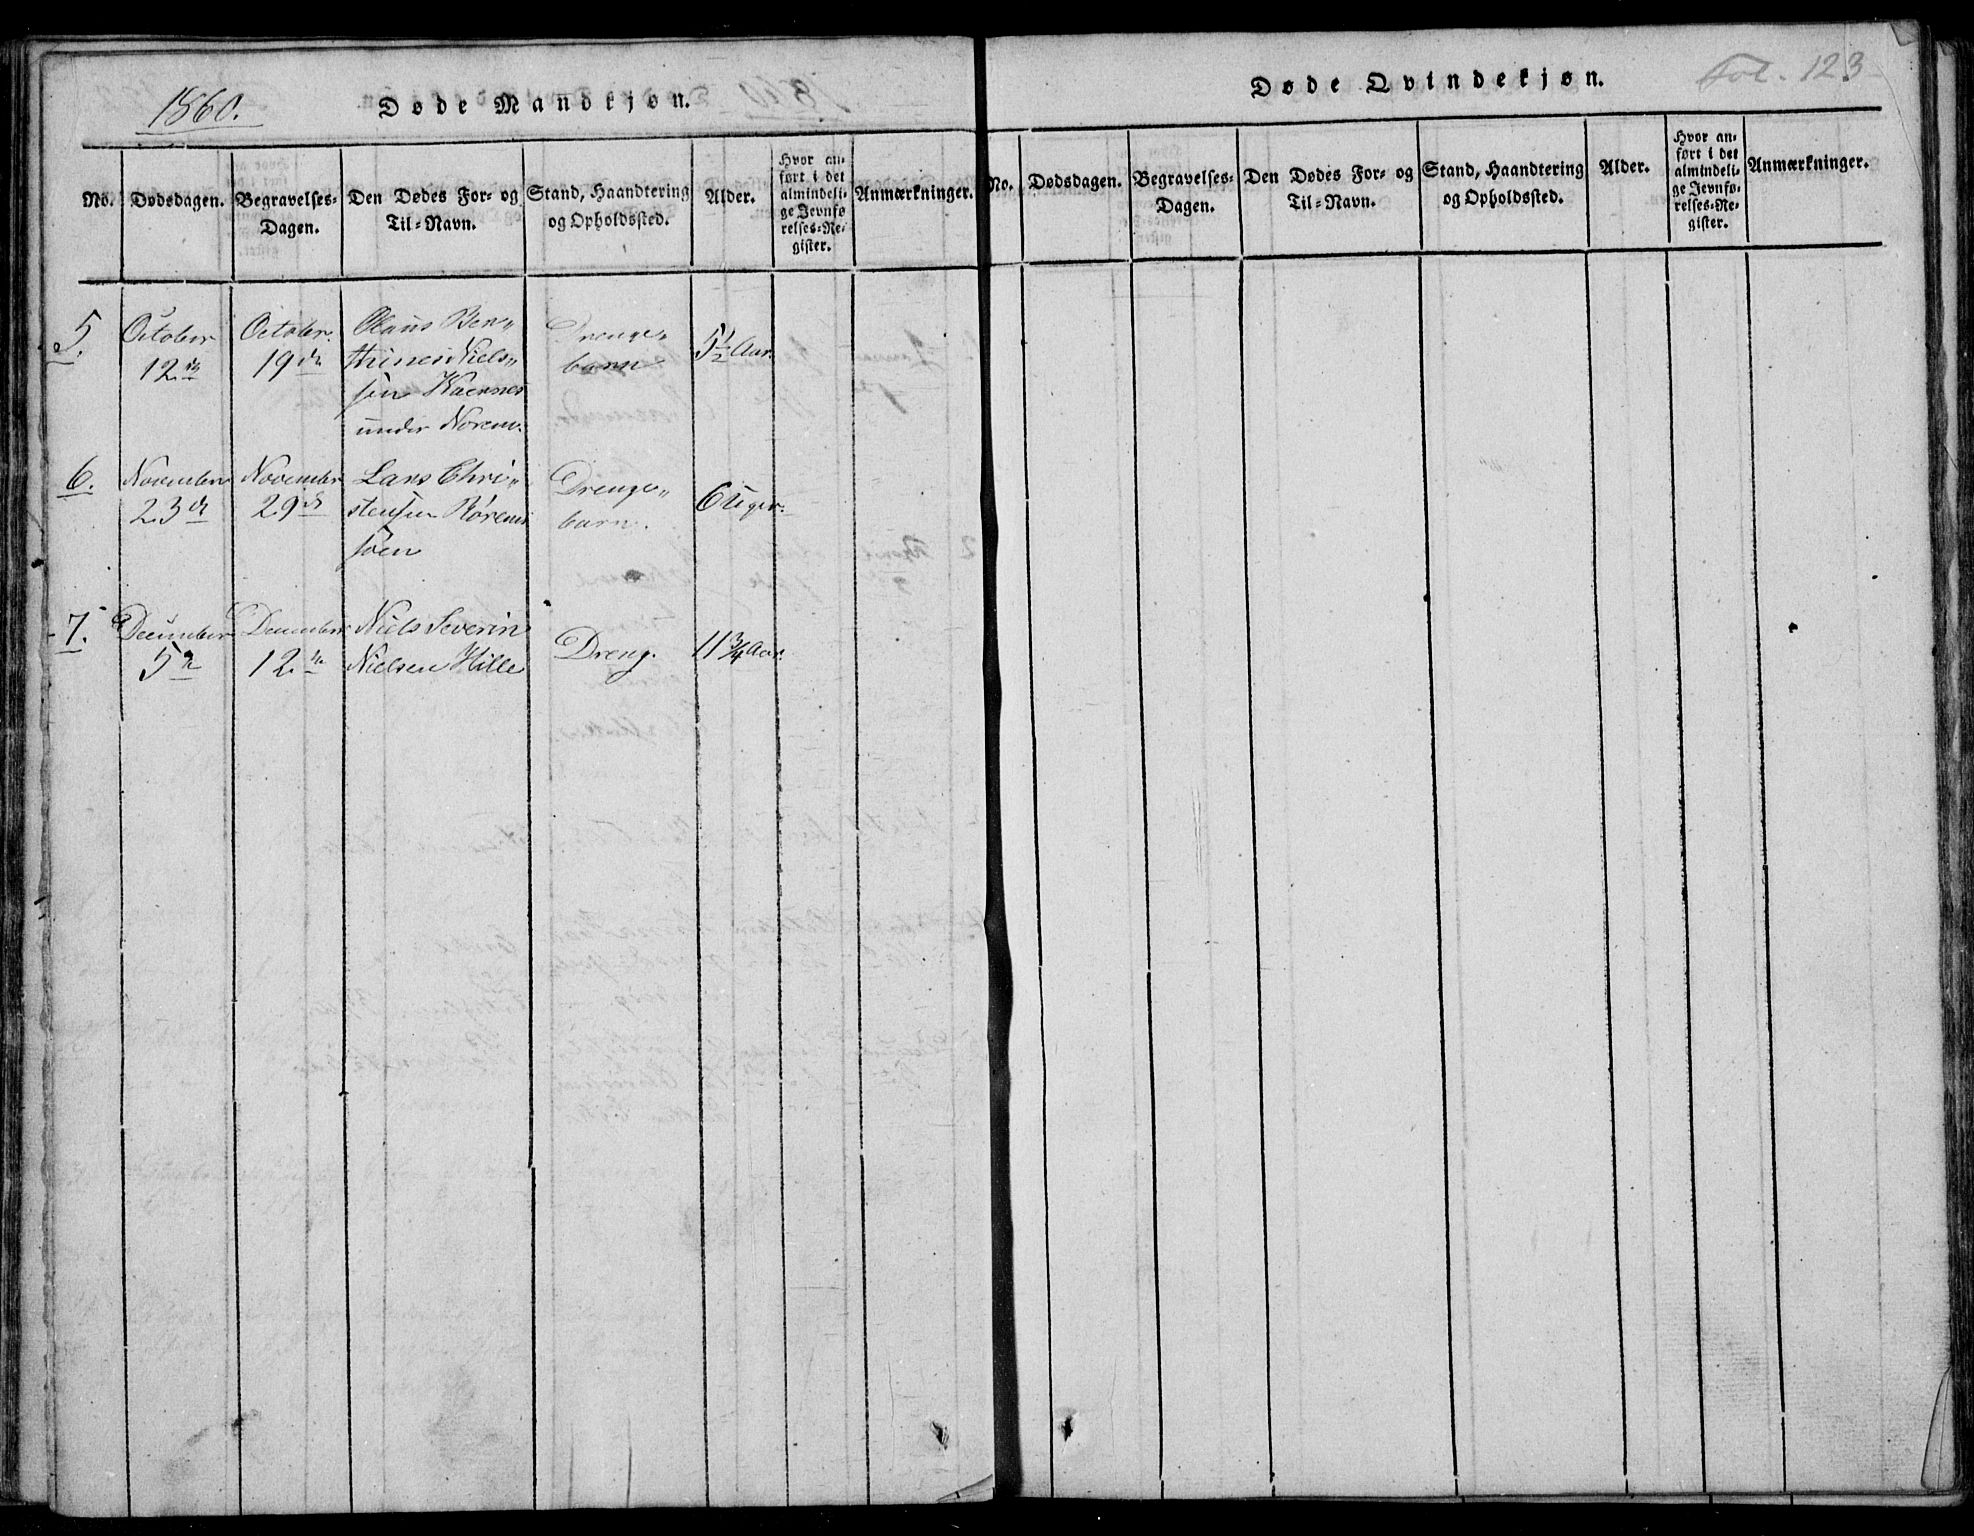 1860.
Døde Mandkjøn.
No. Dødsdagen. Begravelses-Dagen. Den Dødes For- og Til-Navn. Stand, Haandtering og Opholdssted. Alder. Hvor anført i det almindelige Jevnførelses-Register. Anmærkninger.
5. October 12te October 19de Olaus Ben-
thines Niels-
sen
under Norem.
Drenge-
barn
5 1/2 Aar.
6. November 23de November 29de Lars Chri-
stensen Rørem
søen
Drenge-
barn.
6 Uger.
7. December 5te December 12te Niels Severin
Nielsen Hille
Dreng.
11 3/4 Aar.
Døde Qvindekjøn.
Fol. 123
No. Dødsdagen. Begravelses-Dagen. Den Dødes For- og Til-Navn. Stand, Haandtering og Opholdssted. Alder. Hvor anført i det almindelige Jevnførelses-Register. Anmærkninger.